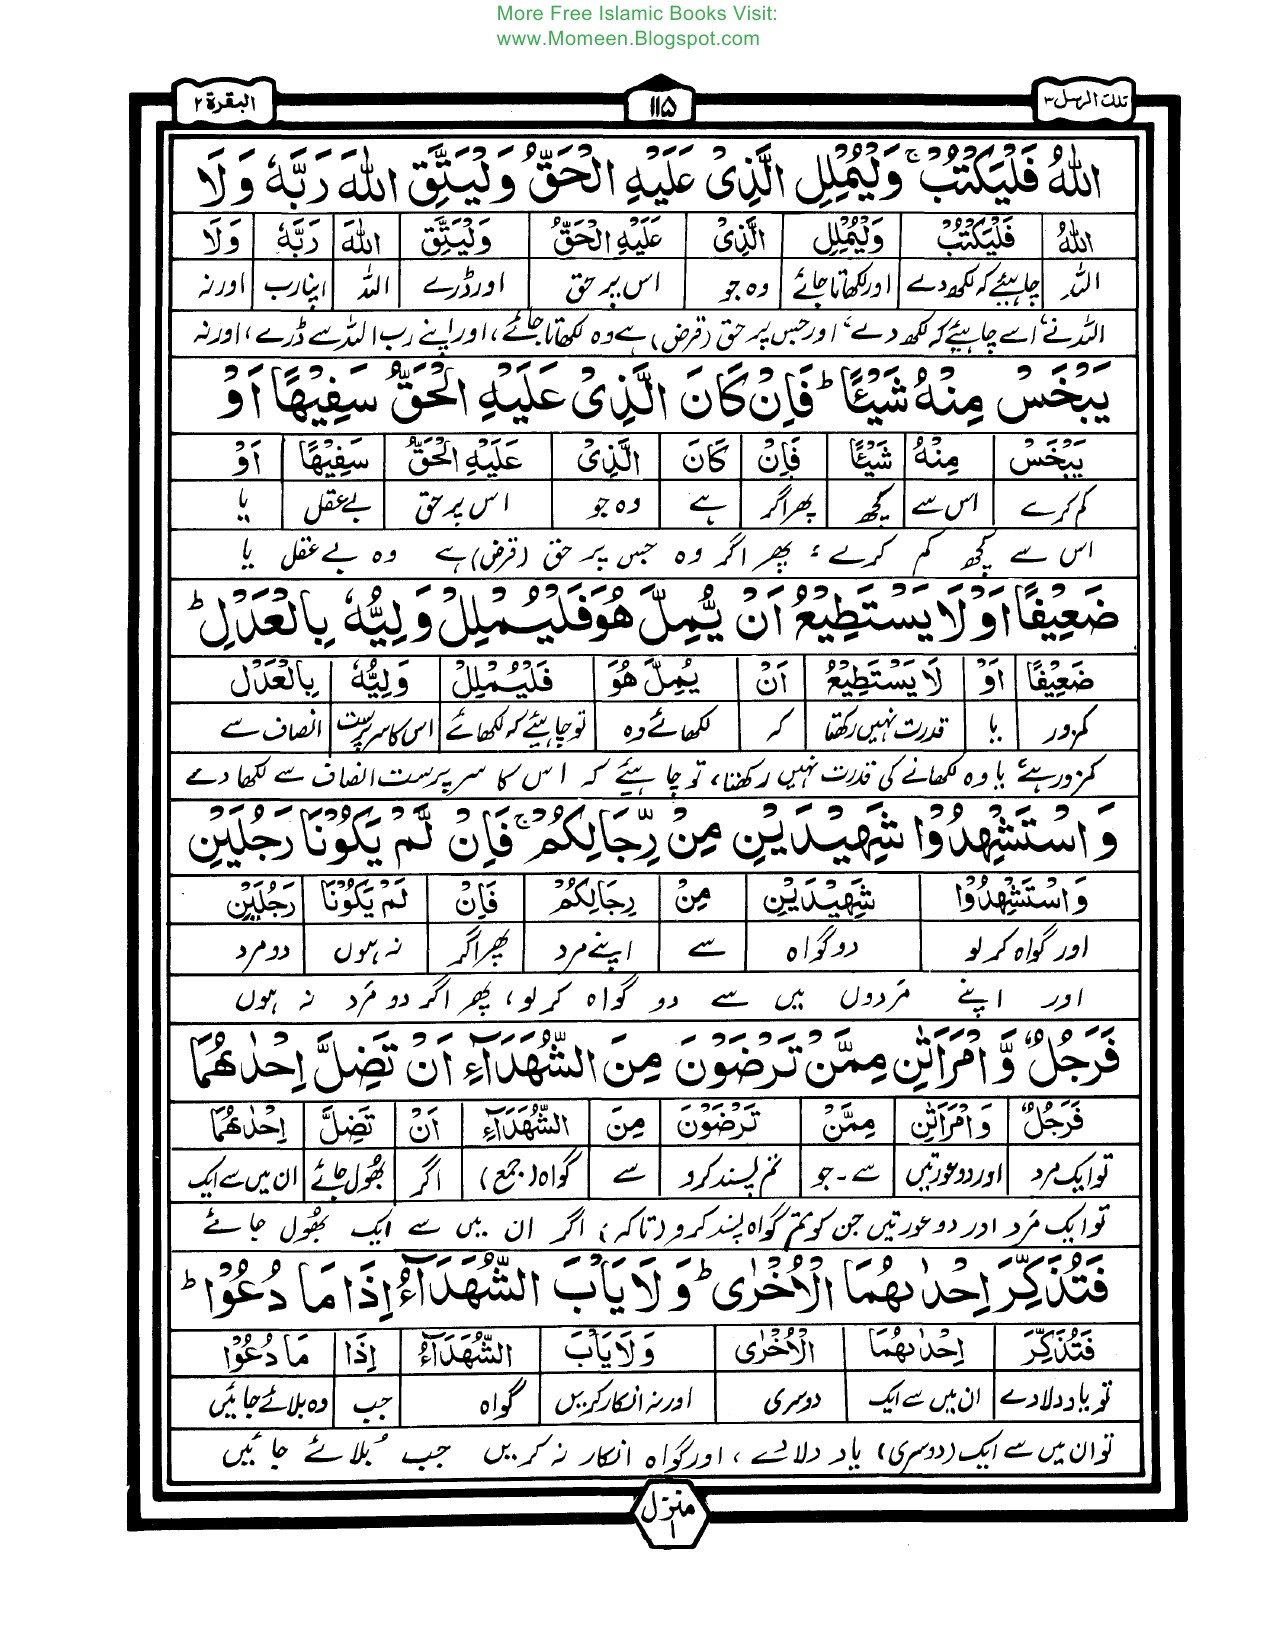 More Free Islamic Books Visit:
www.Momeen.Blogspot.com
تلك الرسل ۳ ۱۱۵ البقرة ۲
اللّٰهُ فَلْيَكْتُبْ ۚ وَلْيُمْلِلِ الَّذِىْ عَلَيْهِ الْحَقُّ وَلْيَتَّقِ اللّٰهَ رَبَّهٗ وَلَا
اللّٰهُ فَلْيَكْتُبْ وَلْيُمْلِلِ الَّذِىْ عَلَيْهِ الْحَقُّ وَلْيَتَّقِ اللّٰهَ رَبَّهٗ وَلَا
اللہ چاہیئے کہ لکھ دے اور لکھاتا جائے وہ جو اس پر حق اور ڈرے اللہ اپنا رب اور نہ
اللہ نے، اسے چاہیئے کہ لکھ دے، اور جس پر حق (قرض) ہے وہ لکھاتا جائے، اور اپنے رب اللہ سے ڈرے، اور نہ
يَبْخَسْ مِنْهُ شَيْئًا ؕ فَاِنْ كَانَ الَّذِىْ عَلَيْهِ الْحَقُّ سَفِيْهًا اَوْ
يَبْخَسْ مِنْهُ شَيْئًا فَاِنْ كَانَ الَّذِىْ عَلَيْهِ الْحَقُّ سَفِيْهًا اَوْ
کم کرے اس سے کچھ پھر اگر ہے وہ جو اس پر حق بے عقل یا
اس سے کچھ کم کرے، پھر اگر وہ جس پر حق (قرض) ہے وہ بے عقل یا
ضَعِيْفًا اَوْ لَا يَسْتَطِيْعُ اَنْ يُّمِلَّ هُوَ فَلْيُمْلِلْ وَلِيُّهٗ بِالْعَدْلِ ؕ
ضَعِيْفًا اَوْ لَا يَسْتَطِيْعُ اَنْ يُمِلَّ هُوَ فَلْيُمْلِلْ وَلِيُّهٗ بِالْعَدْلِ
کمزور یا قدرت نہیں رکھتا کہ لکھائے وہ تو چاہیئے کہ لکھائے اس کا سرپرست انصاف سے
کمزور ہے یا وہ لکھانے کی قدرت نہیں رکھتا، تو چاہیئے کہ اس کا سرپرست انصاف سے لکھا دے
وَاسْتَشْهِدُوْا شَهِيْدَيْنِ مِنْ رِّجَالِكُمْ ۚ فَاِنْ لَّمْ يَكُوْنَا رَجُلَيْنِ
وَاسْتَشْهِدُوْا شَهِيْدَيْنِ مِنْ رِجَالِكُمْ فَاِنْ لَمْ يَكُوْنَا رَجُلَيْنِ
اور گواہ کر لو دو گواہ سے اپنے مرد پھر اگر نہ ہوں دو مرد
اور اپنے مَردوں میں سے دو گواہ کر لو، پھر اگر دو مَرد نہ ہوں
فَرَجُلٌ وَّامْرَاَتٰنِ مِمَّنْ تَرْضَوْنَ مِنَ الشُّهَدَآءِ اَنْ تَضِلَّ اِحْدٰىهُمَا
فَرَجُلٌ وَامْرَاَتٰنِ مِمَّنْ تَرْضَوْنَ مِنَ الشُّهَدَآءِ اَنْ تَضِلَّ اِحْدٰىهُمَا
تو ایک مرد اور دو عورتیں سے۔ جو تم پسند کرو سے گواہ (جمع) اگر بھول جائے ان میں سے ایک
تو ایک مَرد اور دو عورتیں جن کو تم گواہ پسند کرو (تاکہ) اگر ان میں سے ایک بھُول جائے
فَتُذَكِّرَ اِحْدٰىهُمَا الْاُخْرٰى ؕ وَلَا يَاْبَ الشُّهَدَآءُ اِذَا مَا دُعُوْا ؕ
فَتُذَكِّرَ اِحْدٰىهُمَا الْاُخْرٰى وَلَا يَاْبَ الشُّهَدَآءُ اِذَا مَا دُعُوْا
تو یاد دلا دے ان میں سے ایک دوسری اور نہ انکار کریں گواہ جب وہ بلائے جائیں
تو ان میں سے ایک (دوسری) یاد دلا دے، اور گواہ انکار نہ کریں جب بُلائے جائیں
منزل ۱